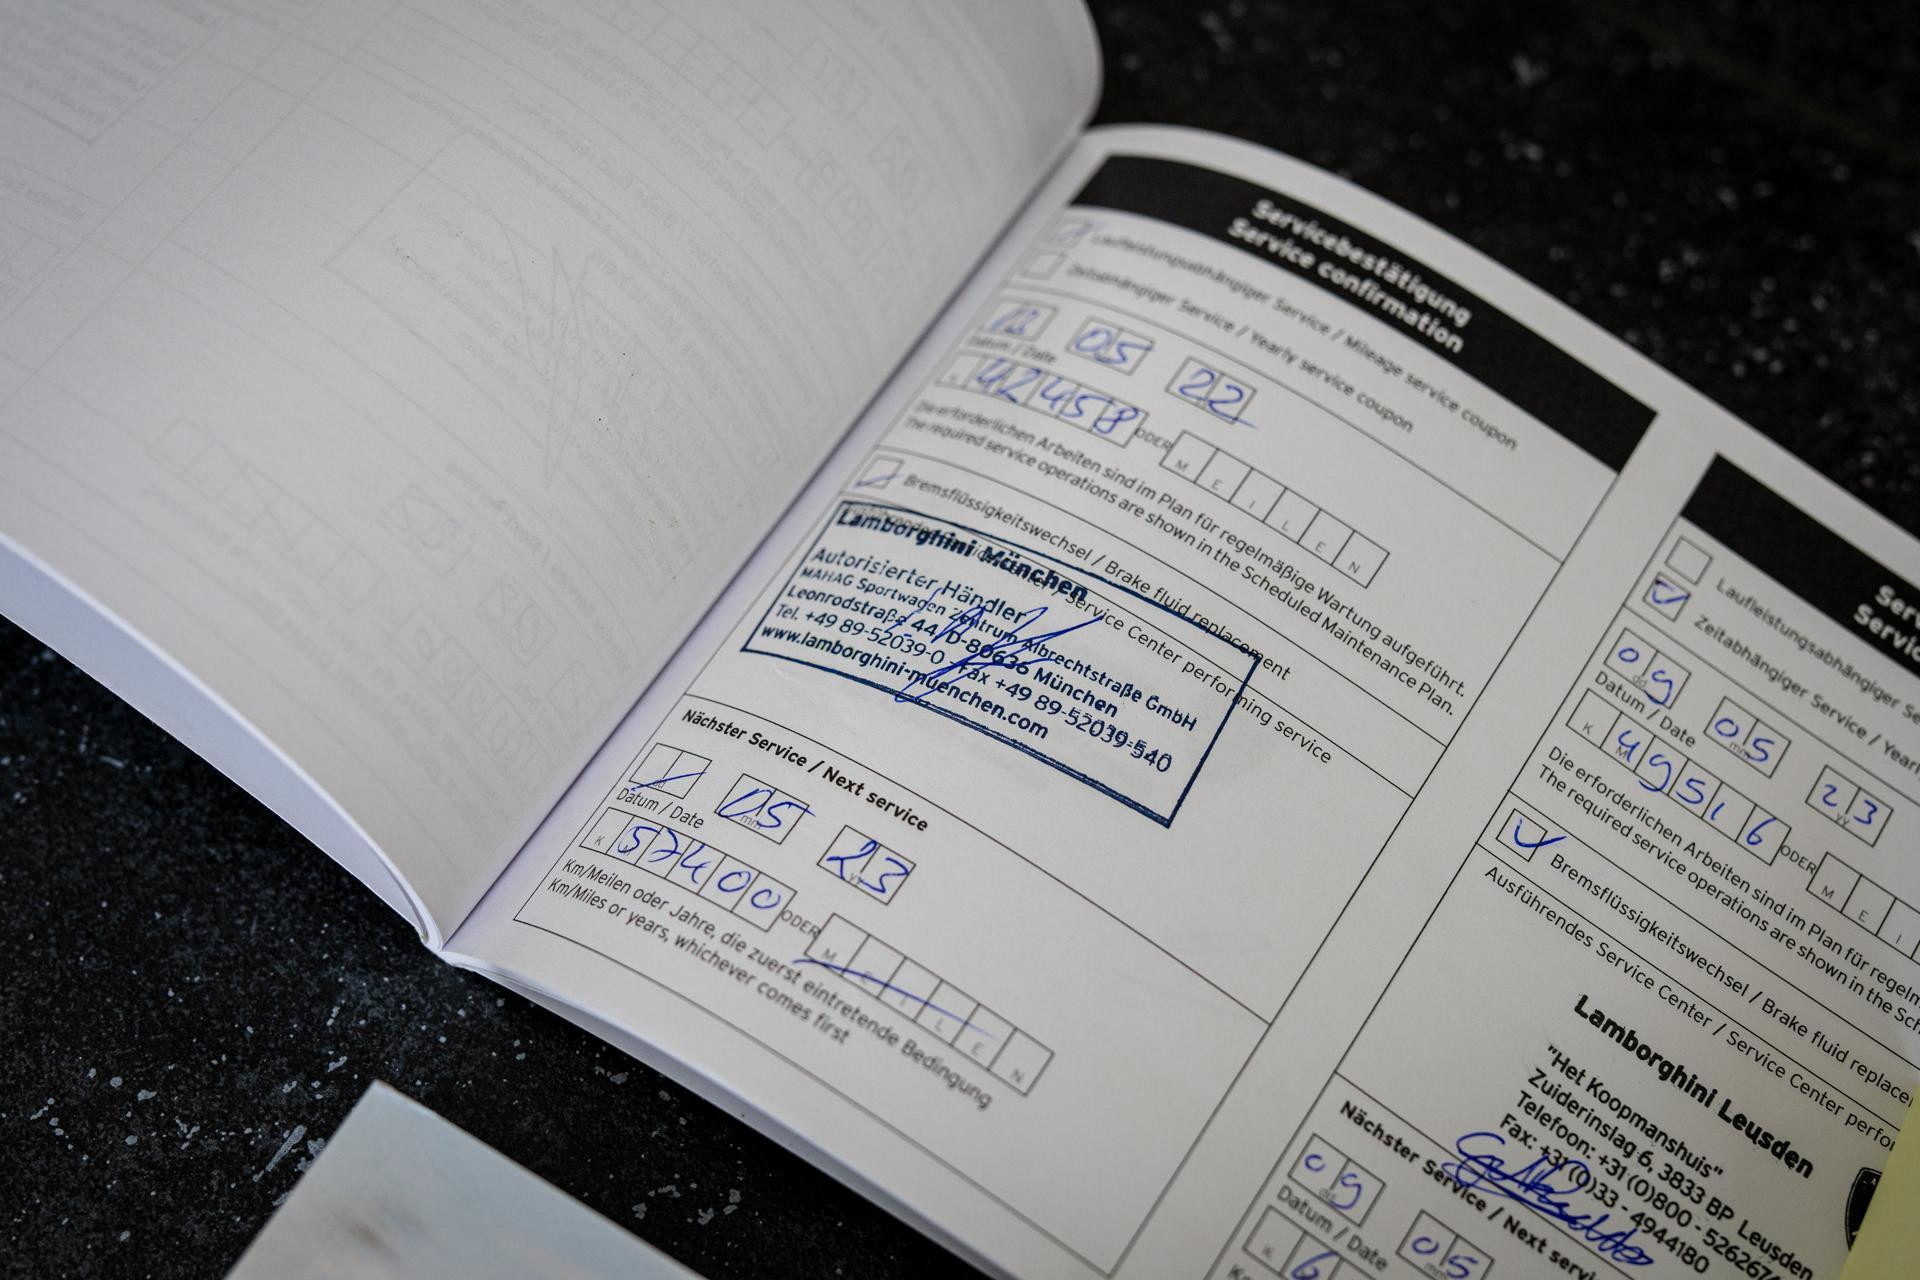 Servicebestätigung
Service confirmation
Laufleistungsabhängiger Service / Mileage service coupon
Zeitabhängiger Service / Yearly service coupon
05 22
Datum / Date
42458 ODER M E I L E N
Die erforderlichen Arbeiten sind im Plan für regelmäßige Wartung aufgeführt.
The required service operations are shown in the Scheduled Maintenance Plan.
Bremsflüssigkeitswechsel / Brake fluid replacement
Service Center performing service
Lamborghini München
Autorisierter Händler
MAHAG Sportwagen Zentrum Albrechtstraße GmbH
Leonrodstraße 44, D-80636 München
Tel. +49 89-52039-0 Fax +49 89-52039-540
www.lamborghini-muenchen.com
Nächster Service / Next service
05 23
Datum / Date
K 57400 ODER M E I L E N
Km/Meilen oder Jahre, die zuerst eintretende Bedingung
Km/Miles or years, whichever comes first
Laufleistungsabhängiger
Zeitabhängiger Service /
09 05 23
Datum / Date
K 49516 ODER M E I
Die erforderlichen Arbeiten sind im Plan für
The required service operations are shown in the
Bremsflüssigkeitswechsel / Brake fluid
Ausführendes Service Center / Service Center
Lamborghini Leusden
"Het Koopmanshuis"
Zuiderinslag 6, 3833 BP Leusden
Telefoon: +31(0)800 -
Fax: +31(0)33 - 4944180
Nächster Service / Next
09 05
Datum / Date
K 6